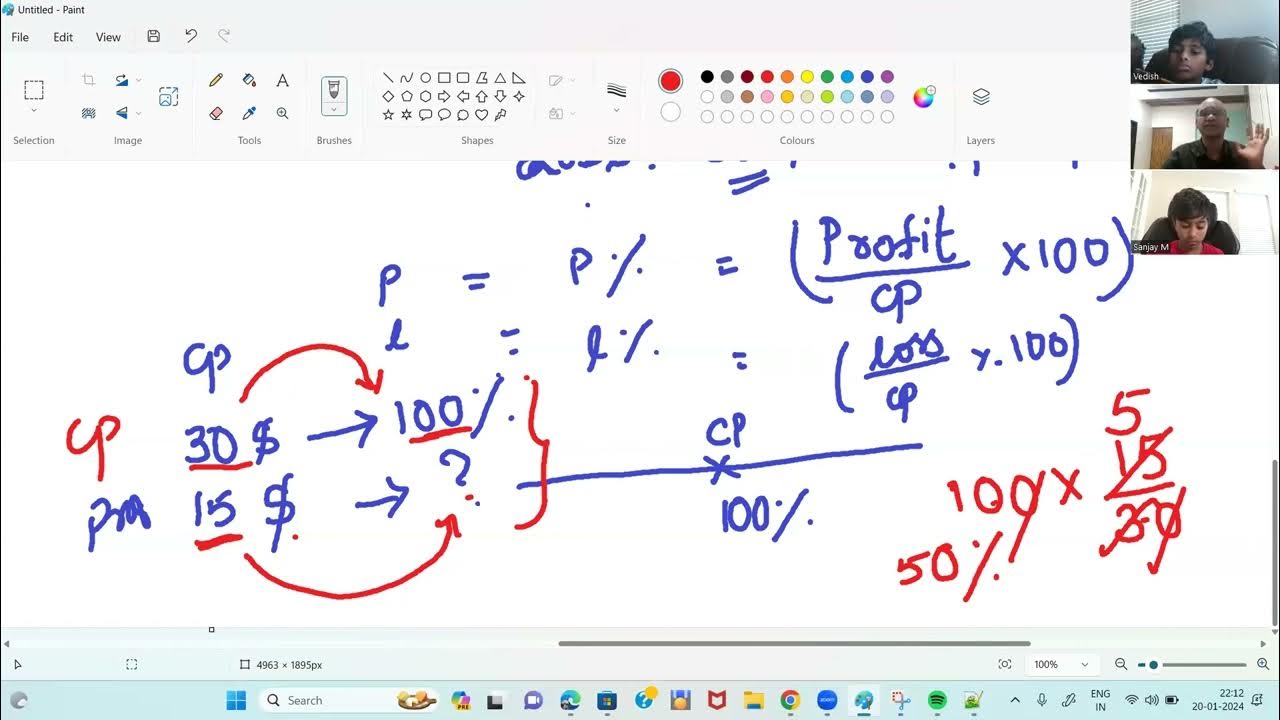 Untitled - Paint
File Edit View
Selection Image Tools Brushes Shapes Size Colours Layers
Vedish
Sanjay M
P = P% = (Profit/CP × 100)
l = l% = (loss/CP × 100)
CP
CP 30 $ → 100%
15 $ → ?
CP
100%
5
100 × 15/30
50%
4963 × 1895px
100%
Search
ENG
IN
22:12
20-01-2024